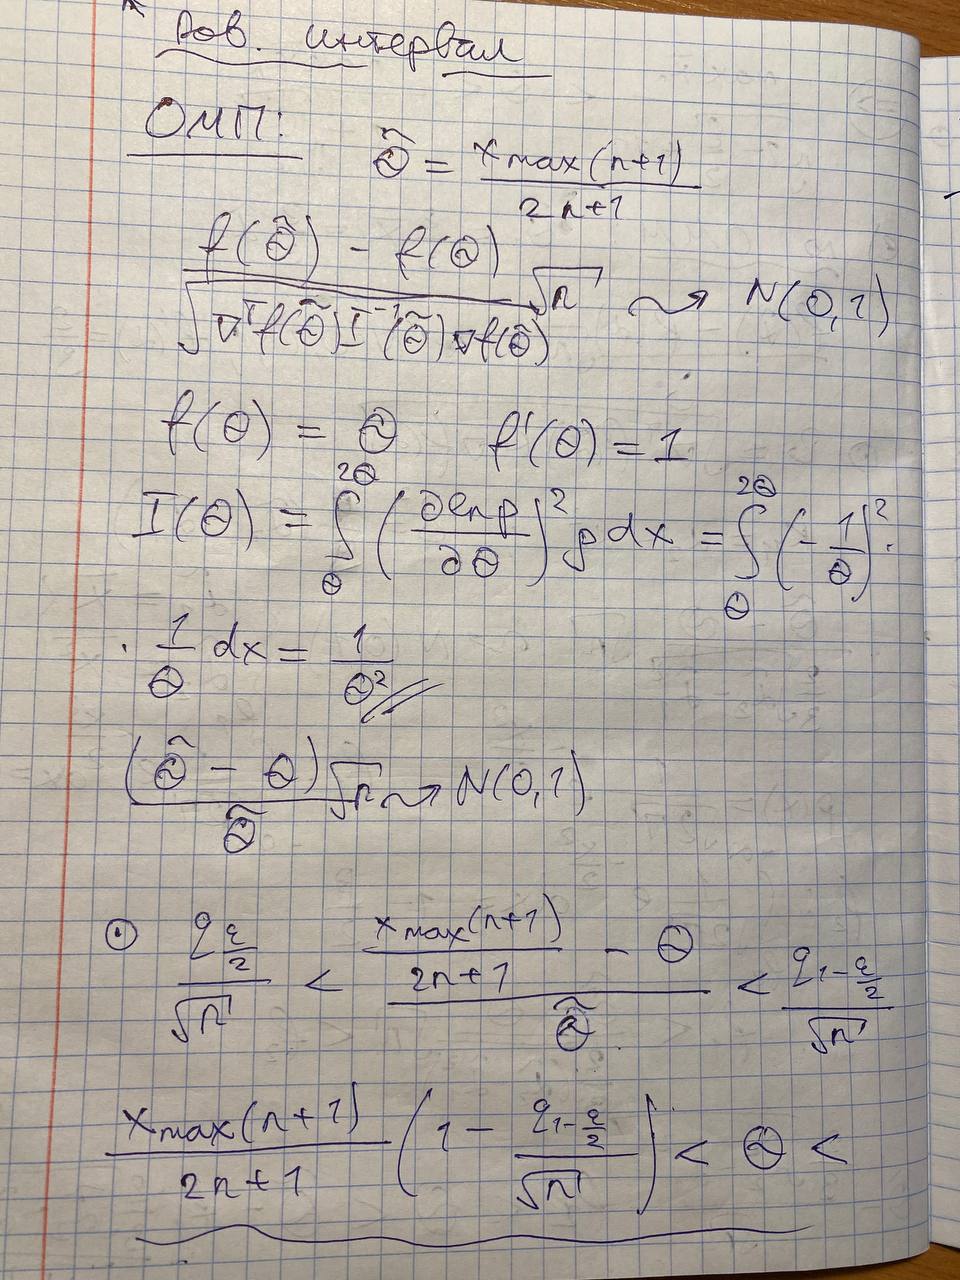 Дов. интервал
ОМП:
θ̃ = x max (n+1) / 2n+1
f(θ̃) - f(θ) / √(∇ᵀf(θ̃) I⁻¹(θ̃) ∇f(θ̃)) √n ⇝ N(0,1)
f(θ) = θ f'(θ) = 1
I(θ) = ∫_θ^{2θ} (∂ln p / ∂θ)² p dx = ∫_θ^{2θ} (- 1/θ)² ·
· 1/θ dx = 1/θ²
(θ̃ - θ)√n / θ̃ ⇝ N(0,1)
q_{ε/2} / √n < (x max (n+1) / 2n+1 - θ) / θ̃ < q_{1-ε/2} / √n
x max (n+1) / 2n+1 (1 - q_{1-ε/2} / √n) < θ <